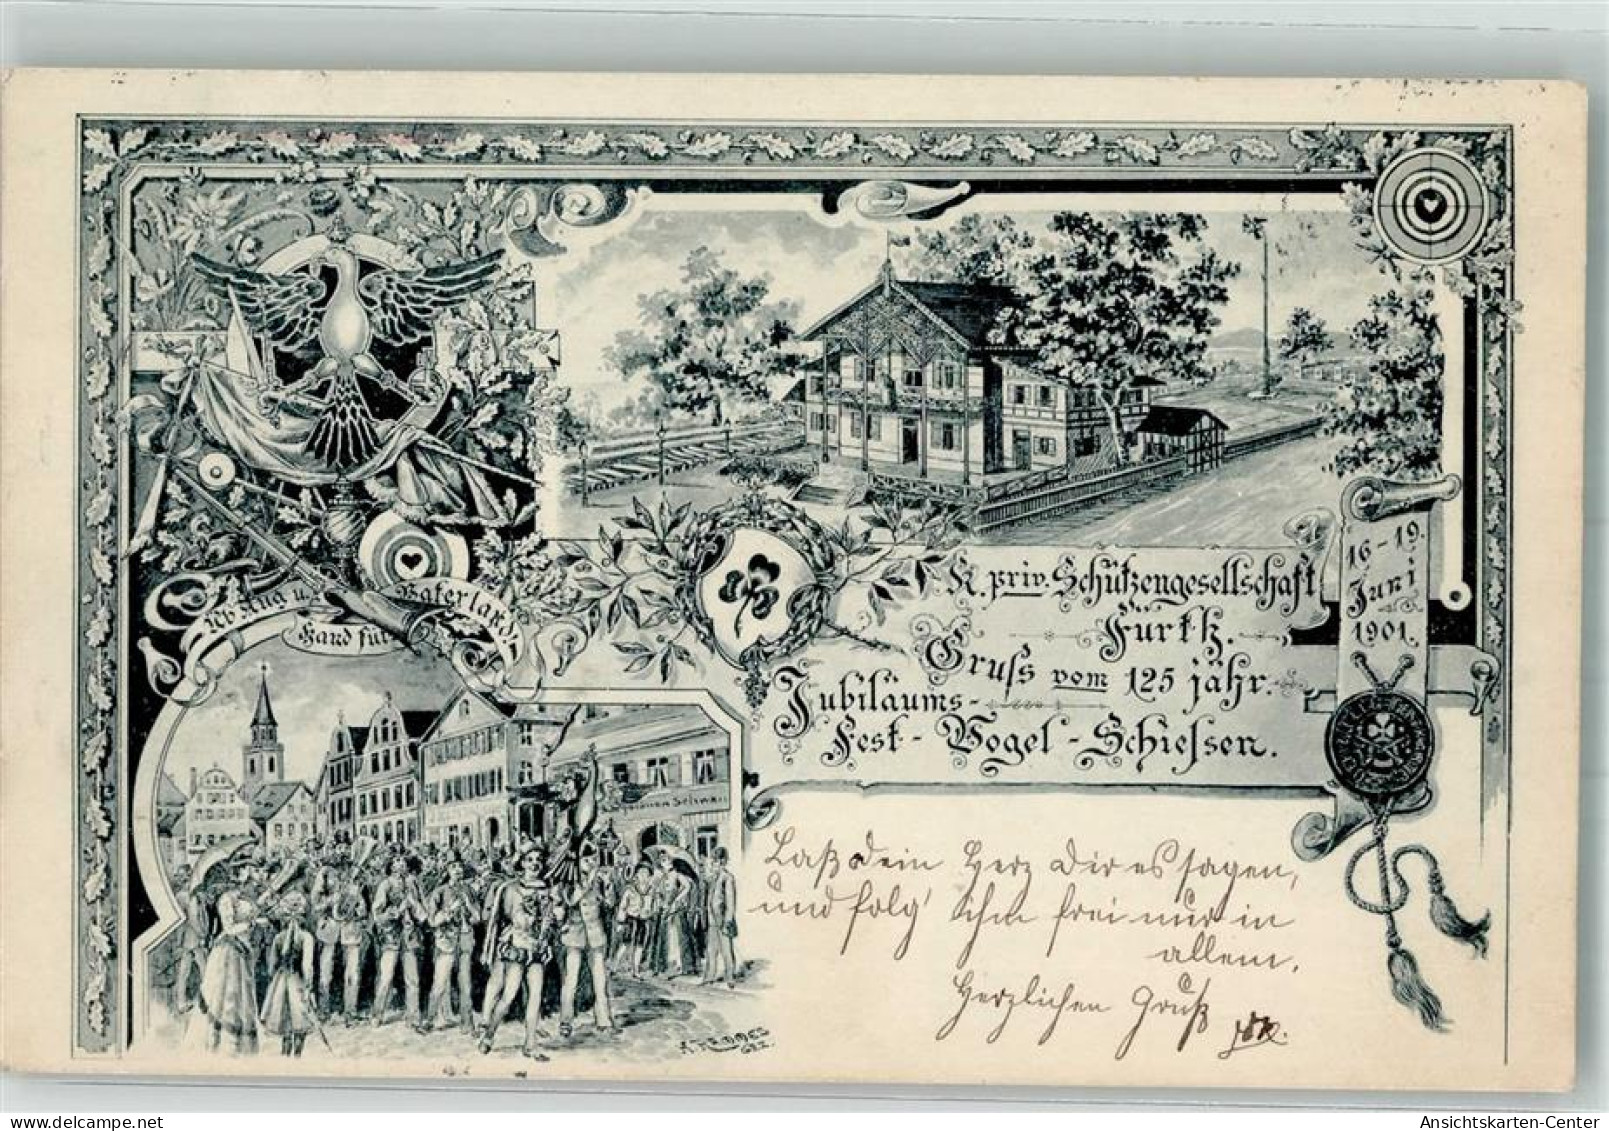 üb Aug u.
Hand für
Vaterland!
K. priv. Schützengesellschaft
Fürth.
Gruss vom 125 jähr.
Jubiläums-
Fest-Vogel-Schiessen.
16-19.
Juni
1901.
Laß dein Herz dir es sagen,
und folg' ihm frei nur in
allem.
Herzlichen Gruß
Ansichtskarten-Center